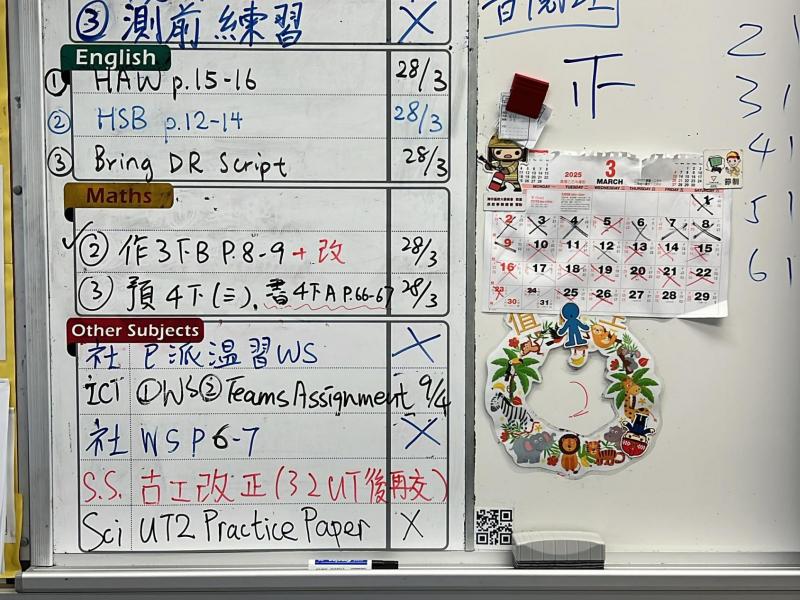 ③ 測前練習 X
English
① HAW p.15-16 28/3
② HSB p.12-14 28/3
③ Bring DR Script 28/3
Maths
② 作3下B P.8-9 + 改 28/3
③ 預4下(三), 書4下A P.66-67 28/3
Other Subjects
社 已派温習WS X
ICT ①WS②Teams Assignment 9/4
社 WS P6-7 X
S.S. 古工改正(32UT後再交)
Sci UT2 Practice Paper X
正
2 1
3 1
4 1
5 1
6 1
節制
2025 3 MARCH
MONDAY TUESDAY WEDNESDAY THURSDAY FRIDAY SATURDAY
1
2 3 4 5 6 7 8
9 10 11 12 13 14 15
16 17 18 19 20 21 22
23 24 25 26 27 28 29
30 31
值 生
2